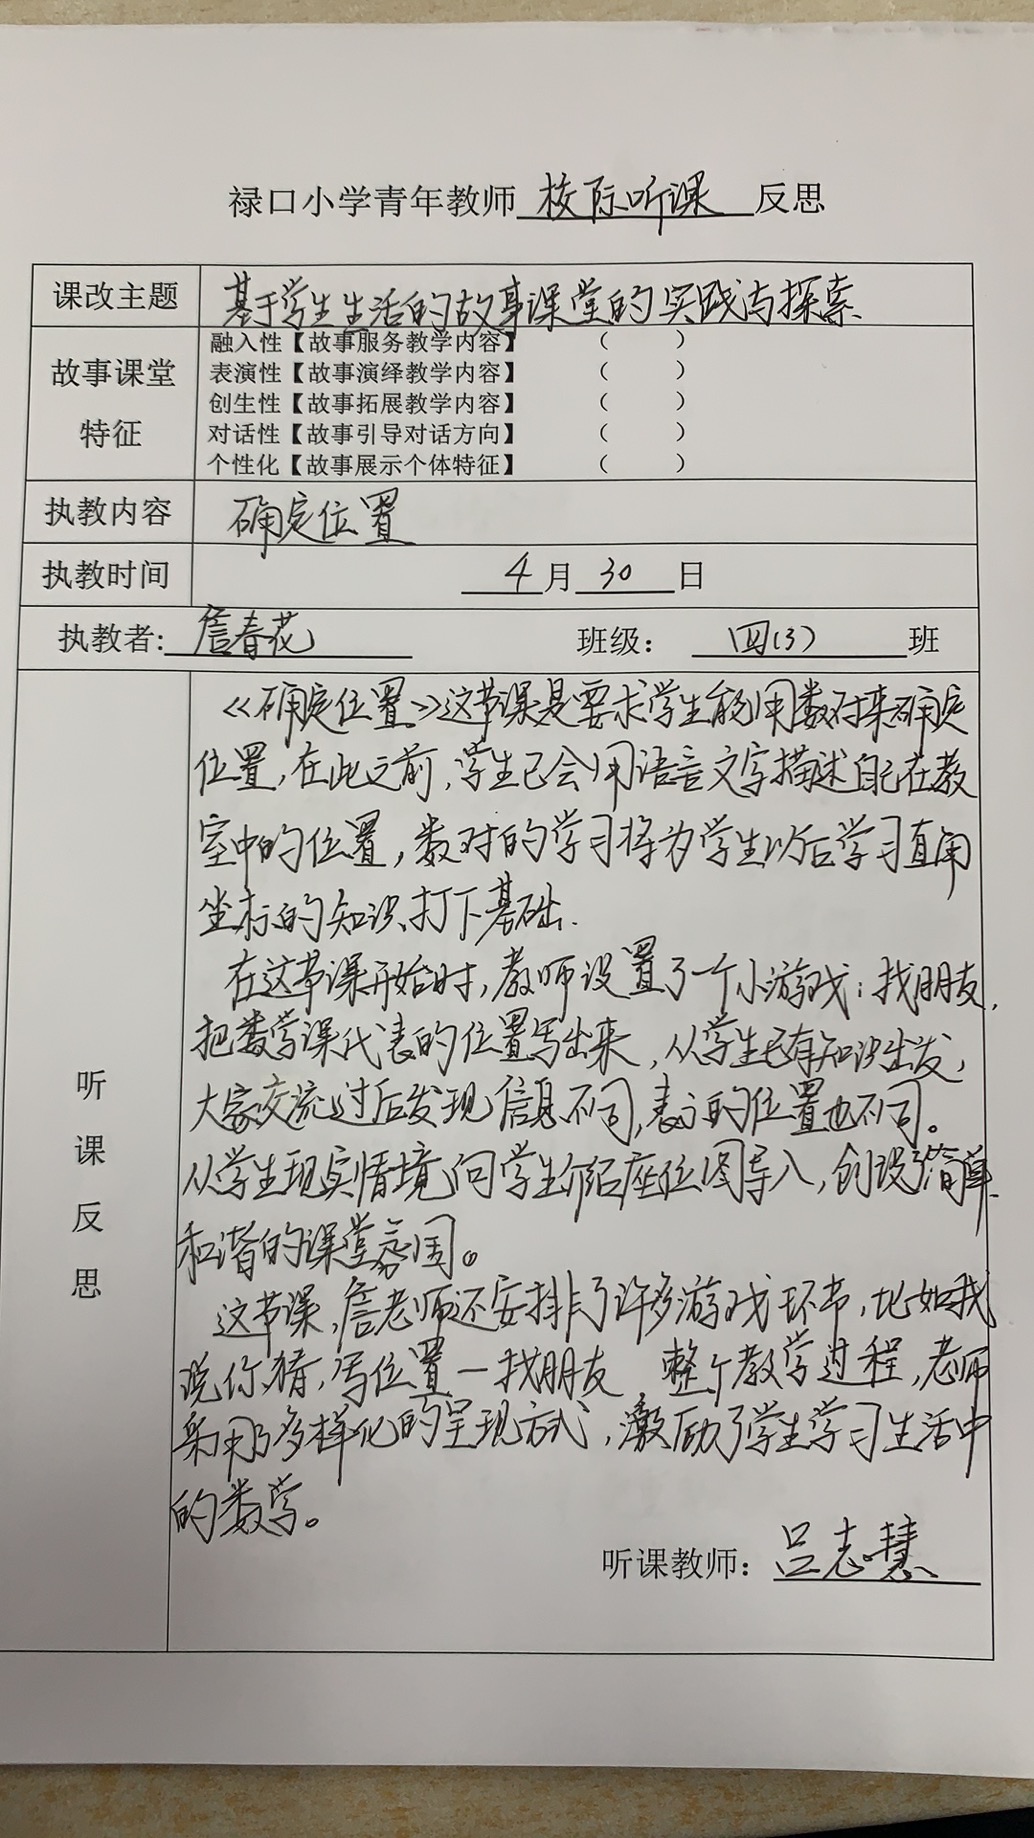 禄口小学青年教师 校际听课 反思
课改主题 基于学生生活的故事课堂的实践与探索
故事课堂
特征
融入性【故事服务教学内容】 （ ）
表演性【故事演绎教学内容】 （ ）
创生性【故事拓展教学内容】 （ ）
对话性【故事引导对话方向】 （ ）
个性化【故事展示个体特征】 （ ）
执教内容 确定位置
执教时间 4月30日
执教者: 詹春花 班级： 四(3) 班
听课反思
《确定位置》这节课是要求学生能用数对来确定
位置,在此之前,学生已会用语言文字描述自己在教
室中的位置,数对的学习将为学生以后学习直角
坐标的知识打下基础.
在这节课开始时,教师设置了一个小游戏:找朋友,
把数学课代表的位置写出来,从学生已有知识出发,
大家交流过后发现信息不同,表示的位置也不同。
从学生现实情境向学生介绍座位图导入,创设了简单
和谐的课堂氛围。
这节课,詹老师还安排了许多游戏环节,比如我
说你猜,写位置一找朋友 整个教学过程,老师
采用了多样化的呈现方式,激励了学生学习生活中
的数学。
听课教师： 吕志慧